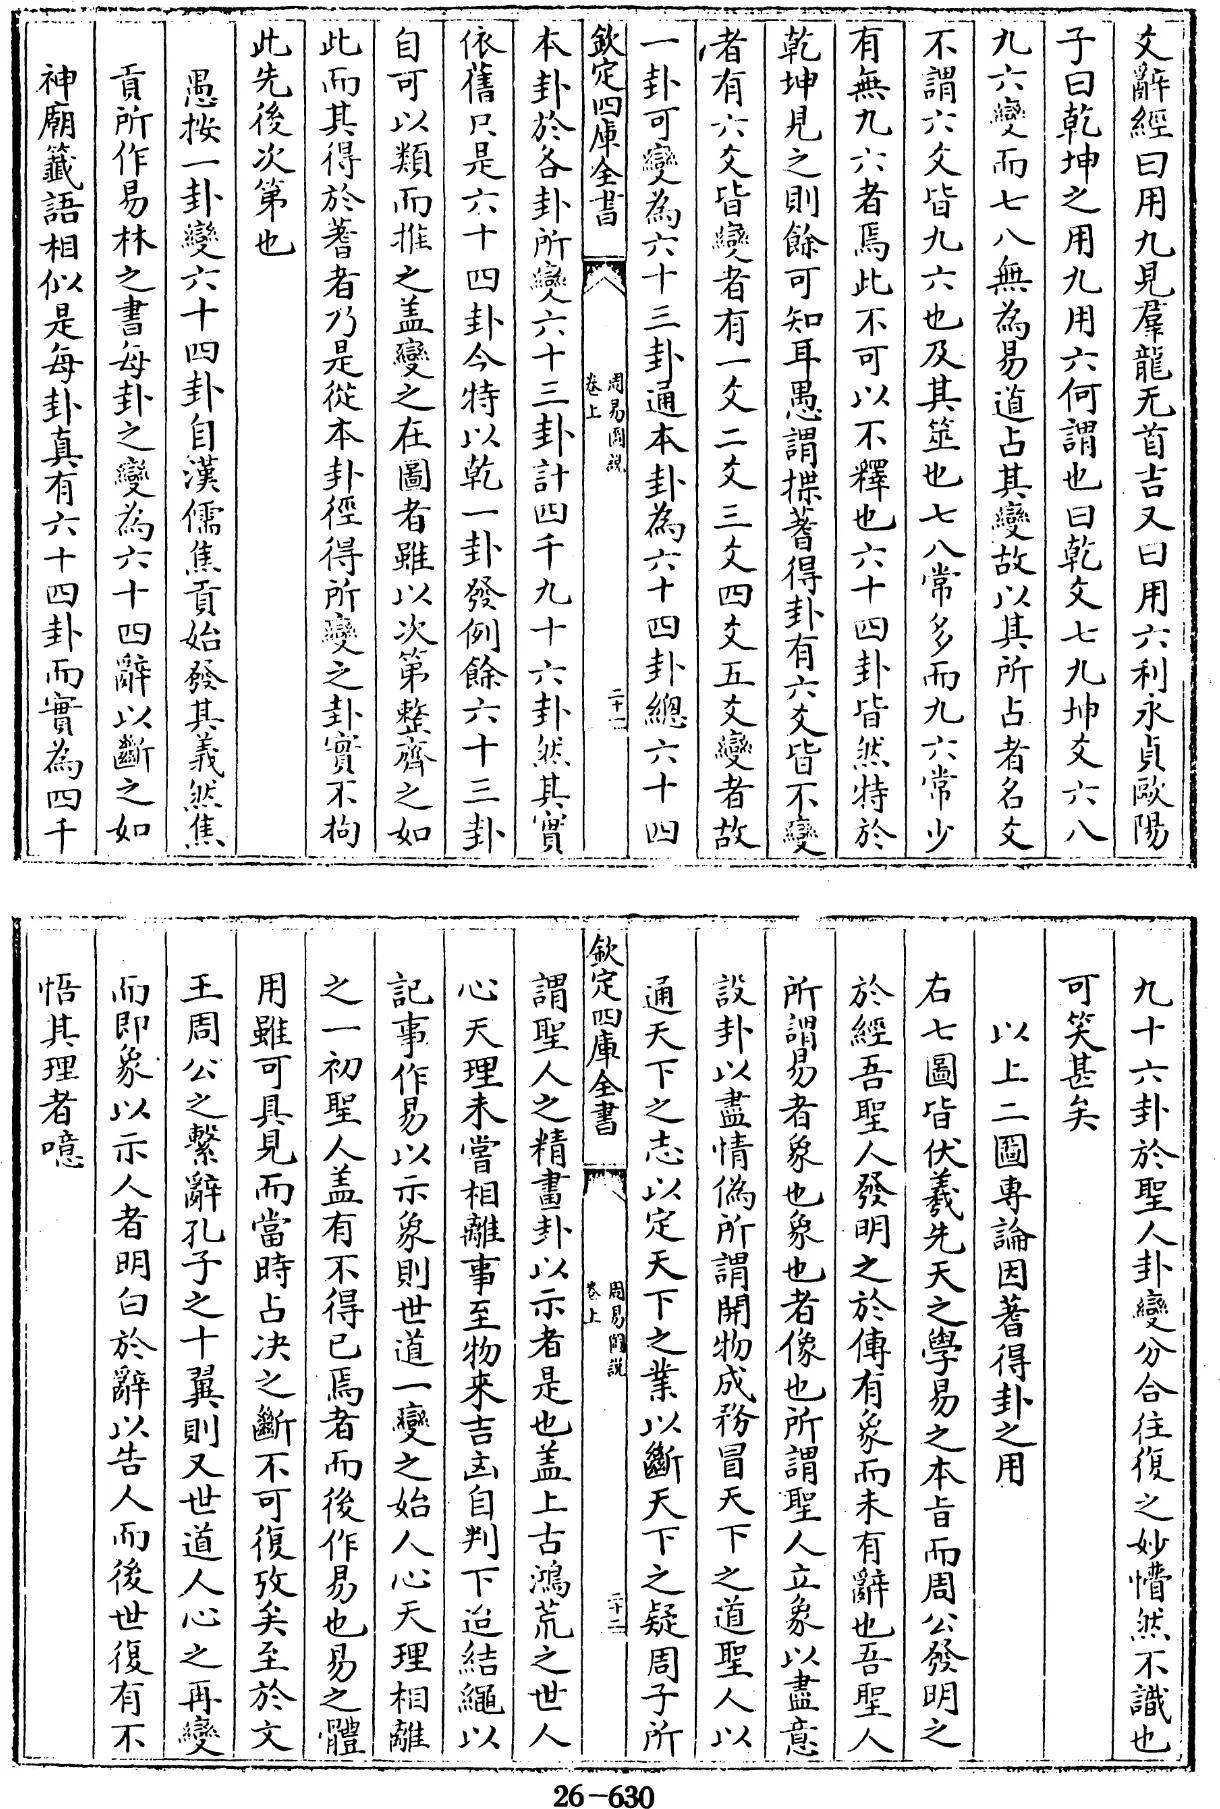 文辭經曰用九見羣龍无首吉又曰用六利永貞歐陽
子曰乾坤之用九用六何謂也曰乾爻七九坤爻六八
九六變而七八無為易道占其變故以其所占者名爻
不謂六爻皆九六也及其筮也七八常多而九六常少
有無九六者焉此不可以不釋也六十四卦皆然特於
乾坤見之則餘可知耳愚謂揲蓍得卦有六爻皆不變
者有六爻皆變者有一爻二爻三爻四爻五爻變者故
一卦可變為六十三卦通本卦為六十四卦總六十四
欽定四庫全書
周易圖說
卷上
二十一
本卦於各卦所變六十三卦計四千九十六卦然其實
依舊只是六十四卦今特以乾一卦發例餘六十三卦
自可以類而推之盖變之在圖者雖以次第整齊之如
此而其得於蓍者乃是從本卦徑得所變之卦實不拘
此先後次第也
愚按一卦變六十四卦自漢儒焦貢始發其義然焦
貢所作易林之書每卦之變為六十四辭以斷之如
神廟籤語相似是每卦真有六十四卦而實為四千
九十六卦於聖人卦變分合往復之妙懵然不識也
可笑甚矣
以上二圖專論因蓍得卦之用
右七圖皆伏羲先天之學易之本旨而周公發明之
於經吾聖人發明之於傳有象而未有辭也吾聖人
所謂易者象也象也者像也所謂聖人立象以盡意
設卦以盡情偽所謂開物成務冒天下之道聖人以
通天下之志以定天下之業以斷天下之疑周子所
欽定四庫全書
周易圖說
卷上
二十二
謂聖人之精畫卦以示者是也盖上古鴻荒之世人
心天理未嘗相離事至物來吉凶自判下迨結繩以
記事作易以示象則世道一變之始人心天理相離
之一初聖人盖有不得已焉者而後作易也易之體
用雖可具見而當時占決之斷不可復攷矣至於文
王周公之繫辭孔子之十翼則又世道人心之再變
而即象以示人者明白於辭以告人而後世復有不
悟其理者噫
26-630